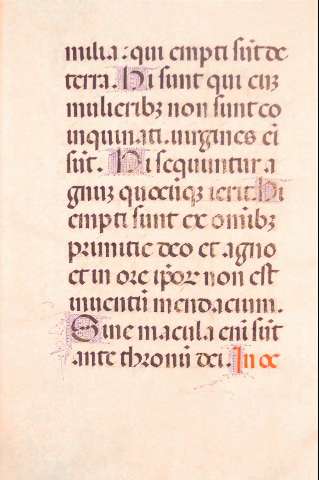 milia: qui empti sūt de
terra. Hi sunt qui cuȝ
mulieribȝ non sunt co
inquinati. uirgines ei
sūt. Hi sequuntur a
gnuȝ quocūqȝ ierit. Hi
empti sunt ex omībȝ
primitie deo et agno
et in ore ipoꝝ non est
inuentū mendacium.
Sine macula eni sūt
ante thronū dei. In oc